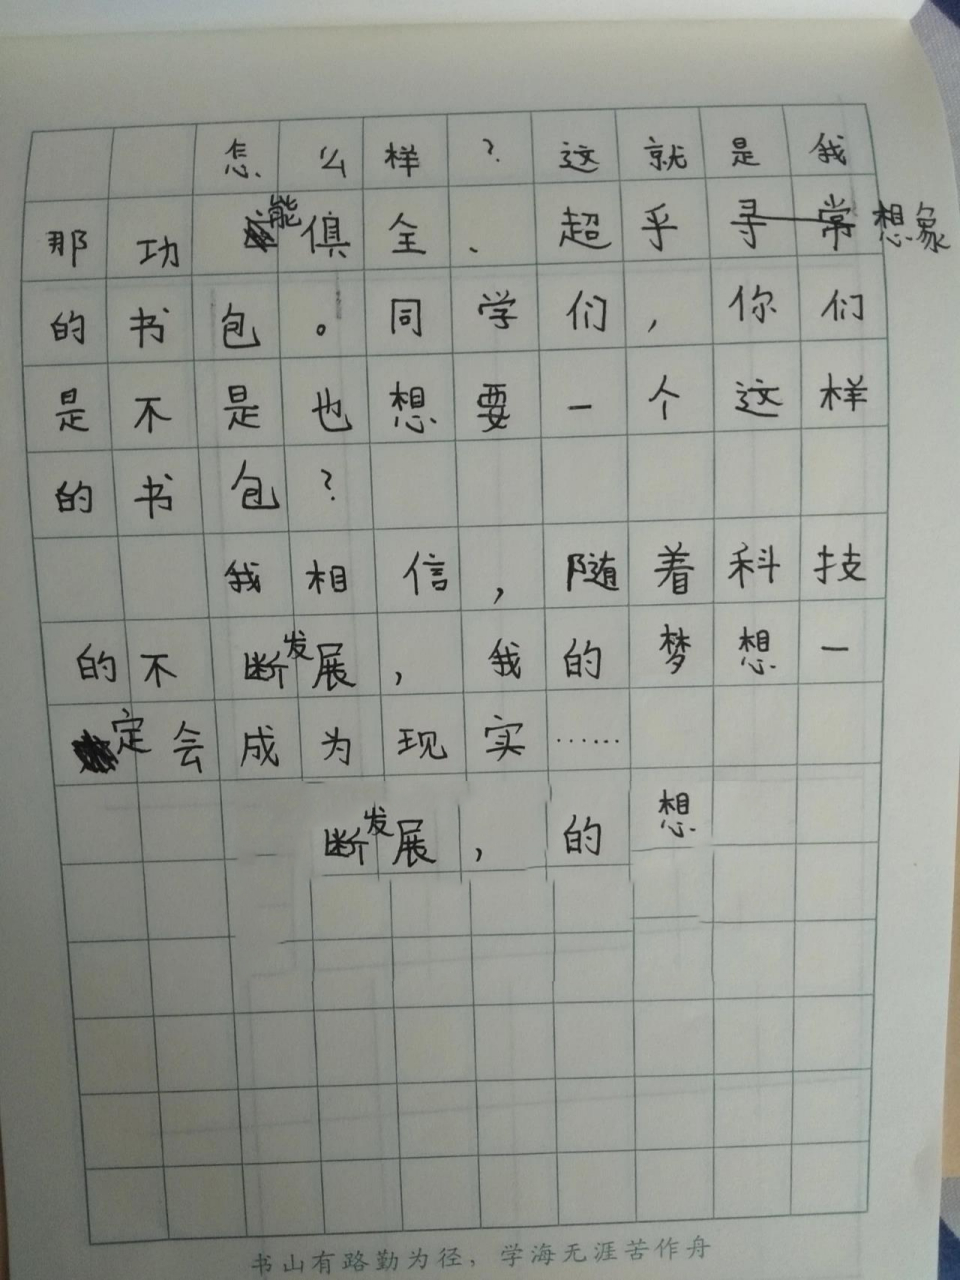 怎么样？这就是我
那功能俱全、超乎寻常想象
的书包。同学们，你们
是不是也想要一个这样
的书包？
我相信，随着科技
的不断发展，我的梦想一
定会成为现实……
断发展，的想
书山有路勤为径，学海无涯苦作舟